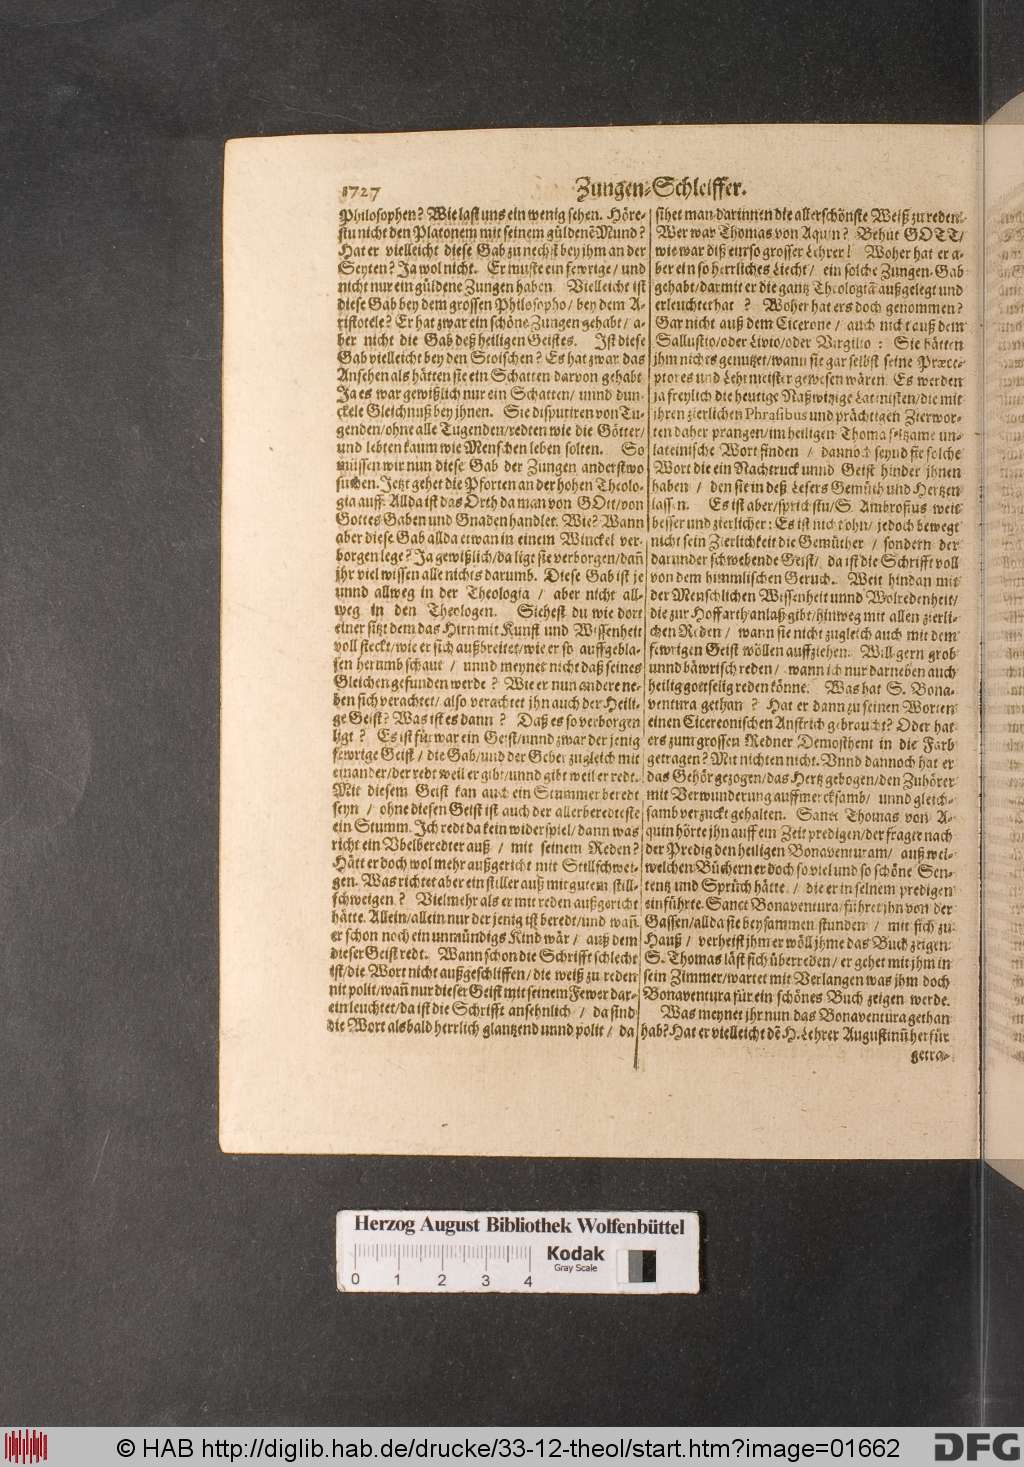 1727
Zungen-Schleiffer.
Philosophen? Wie last uns ein wenig sehen. Höre-
stu nicht den Platonem mit seinem güldenē Mund?
Hat er vielleicht diese Gab zu nechst bey ihm an der
Seyten? Ja wol nicht. Er wuste ein fewrige / und
nicht nur ein güldene Zungen haben. Vielleicht ist
diese Gab bey dem grossen Philosopho / bey dem A-
ristotele? Er hat zwar ein schöne Zungen gehabt / a-
ber nicht die Gab deß heiligen Geistes. Ist diese
Gab vielleicht bey den Stoischen? Es hat zwar das
Ansehen als hätten sie ein Schatten darvon gehabt
Ja es war gewißlich nur ein Schatten / unnd dun-
ckele Gleichnuß bey jhnen. Sie disputiren von Tu-
genden / ohne alle Tugenden / redten wie die Götter /
und lebten kaum wie Menschen leben solten. So
müssen wir nun diese Gab der Zungen anderstwo
suchen. Jetzt gehet die Pforten an der hohen Theolo-
gia auff. Allda ist das Orth da man von GOtt / von
Gottes Gaben und Gnaden handlet. Wie? Wann
aber diese Gab allda etwan in einem Winckel ver-
borgen lege? Ja gewißlich / da ligt sie verborgen / dañ
jhr viel wissen alle nichts darumb. Diese Gab ist je
unnd allweg in der Theologia / aber nicht all-
weg in den Theologen. Siehest du wie dort
einer sitzt dem das Hirn mit Kunst und Wissenheit
voll steckt / wie er sich außbreitet / wie er so auffgebla-
sen herumb schaut / unnd meynet nicht daß seines
Gleichen gefunden werde? Wie er nun andere ne-
ben sich verachtet / also verachtet jhn auch der Heili-
ge Geist? Was ist es dann? Daß es so verborgen
ligt? Es ist fürwar ein Geist / unnd zwar der jenig
fewrige Geist / die Gab / und der Geber zugleich mit
einander / der redt weil er gibt / unnd gibt weil er redt.
Mit diesem Geist kan auch ein Stummer beredt
seyn / ohne diesen Geist ist auch der allerberedteste
ein Stumm. Ich red da kein widerspiel / dann was
richt ein Ubelberedter auß / mit seinem Reden?
Hätt er doch wol mehr außgericht mit Stillschwei-
gen. Was richtet aber ein stiller auß mit gutem still-
schweigen? Vielmehr als er mit reden außgericht
hätte. Allein / allein nur der jenig ist beredt / und wañ
er schon noch ein unmündigs Kind wär / auß dem
dieser Geist redt. Wann schon die Schrifft schlecht
ist / die Wort nicht außgeschliffen / die weiß zu reden
nit polit / wañ nur dieser Geist mit seinem Fewer dar-
ein leuchtet / da ist die Schrifft ansehnlich / da sind
die Wort alsbald herrlich glantzend unnd polit / da
sihet man darinnen die allerschönste Weiß zu reden.
Wer war Thomas von Aquin? Behüt GOTT /
wie war diß ein so grosser Lehrer! Woher hat er a-
ber ein so herrliches Liecht / ein solche Zungen-Gab
gehabt / darmit er die gantz Theologiā außgelegt und
erleuchtet hat? Woher hat ers doch genommen?
Gar nicht auß dem Cicerone / auch nicht auß dem
Sallustio / oder Livio / oder Virgilio: Sie hätten
jhm nichts genutzet / wann sie gar selbst seine Præce-
ptores und Lehrmeister gewesen wären. Es werden
ja freylich die heutige Naßwitzige Latinisten / die mit
ihren zierlichen Phrasibus und prächtigen Zierwor-
ten daher prangen / im heiligen Thoma seltzame un-
lateinische Wort finden / dannoch seynd sie solche
Wort die ein Nachtruck unnd Geist hinder jhnen
haben / den sie in deß Lesers Gemüth und Hertzen
lassen. Es ist aber / sprichstu / S. Ambrosius weit
besser und zierlicher: Es ist nicht ohn / jedoch bewegt
nicht sein Zierlichkeit die Gemüther / sondern der
darunder schwebende Geist / da ist die Schrifft voll
von dem himmlischen Geruch. Weit hindan mit
der Menschlichen Wissenheit unnd Wolredenheit /
die zur Hoffarth anlaß gibt / hinweg mit allen zierli-
chen Reden / wann sie nicht zugleich auch mit dem
fewrigen Geist wöllen auffziehen. Will gern grob
unnd bäwrisch reden / wann ich nur darneben auch
heilig gottselig reden könne. Was hat S. Bona-
ventura gethan? Hat er dann zu seinen Worten
einen Ciceronischen Anstrich gebraucht? Oder hat
ers zum grossen Redner Demostheni in die Farb
getragen? Mit nichten nicht. Unnd dannoch hat er
das Gehör gezogen / das Hertz gebogen / den Zuhörer
mit Verwunderung auffmercksamb / unnd gleich-
samb verzuckt gehalten. Sanct Thomas von A-
quin hörte jhn auff ein Zeit predigen / der fragte nach
der Predig den heiligen Bonaventuram / auß wel-
welchen Büchern er doch so viel und so schöne Sen-
tentz und Sprüch hätte / die er in seinem predigen
einführte. Sanct Bonaventura / führet jhn von der
Gassen / allda sie beysammen stunden / mit sich zu
Hauß / verheist jhm er wöll jhme das Buch zeigen.
S. Thomas läst sich überreden / er gehet mit jhm in
sein Zimmer / wartet mit Verlangen was jhm doch
Bonaventura für ein schönes Buch zeigen werde.
Was meynet jhr nun das Bonaventura gethan
hab? Hat er vielleicht dē H. Lehrer Augustinū herfür
getra-
Herzog August Bibliothek Wolfenbüttel
0 1 2 3 4
Kodak
Gray Scale
© HAB http://diglib.hab.de/drucke/33-12-theol/start.htm?image=01662
DFG